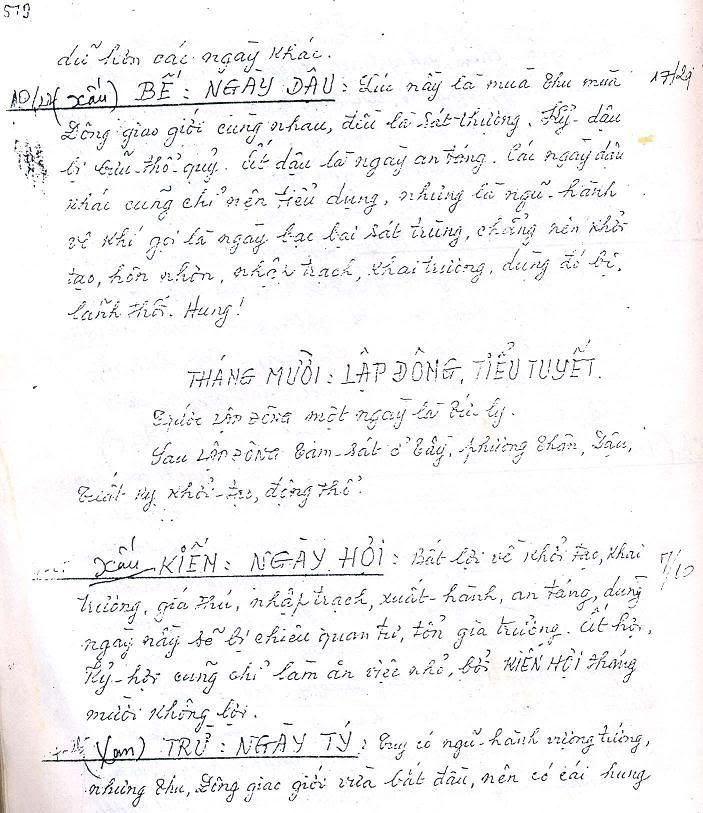 dữ hơn các ngày khác.
(xấu) BẾ : NGÀY DẬU : Lúc nầy là mùa thu mùa 17/29
Đông giao giới cùng nhau, đều là Sát-thương. Kỷ-dậu
bị Cửu-thổ-quỷ. Ất dậu là ngày an táng. Các ngày dậu
khác cũng chỉ nên tiểu dụng, nhưng là ngũ-hành
vô khí gọi là ngày bạc bại sát trùng, chẳng nên khởi
tạo, hôn nhơn, nhập trạch, khai trương, dùng đó bị,
lãnh thối. Hung!
THÁNG MƯỜI : LẬP ĐÔNG, TIỂU TUYẾT.
Trước LẬP ĐÔNG một ngày là Tứ-ly.
Sau LẬP ĐÔNG Tam-Sát ở Tây, phương Thân, Dậu,
Tuất kỵ khởi-tạo, động thổ.
Xấu KIẾN : NGÀY HỢI : Bất lợi về khởi tạo, khai 7/10
trương, giá thú, nhập trạch, xuất-hành, an táng, dùng
ngày nầy sẽ bị chiêu quan tư, tổn gia trưởng. Ất hợi,
Kỷ-hợi cũng chỉ làm ăn việc nhỏ, bởi KIẾN HỢI tháng
mười không lợi.
(Xan) TRỪ : NGÀY TÝ : Tuy có ngũ-hành vượng tướng,
nhưng Thu, Đông giao giới vừa bắt đầu, nên có cái hung